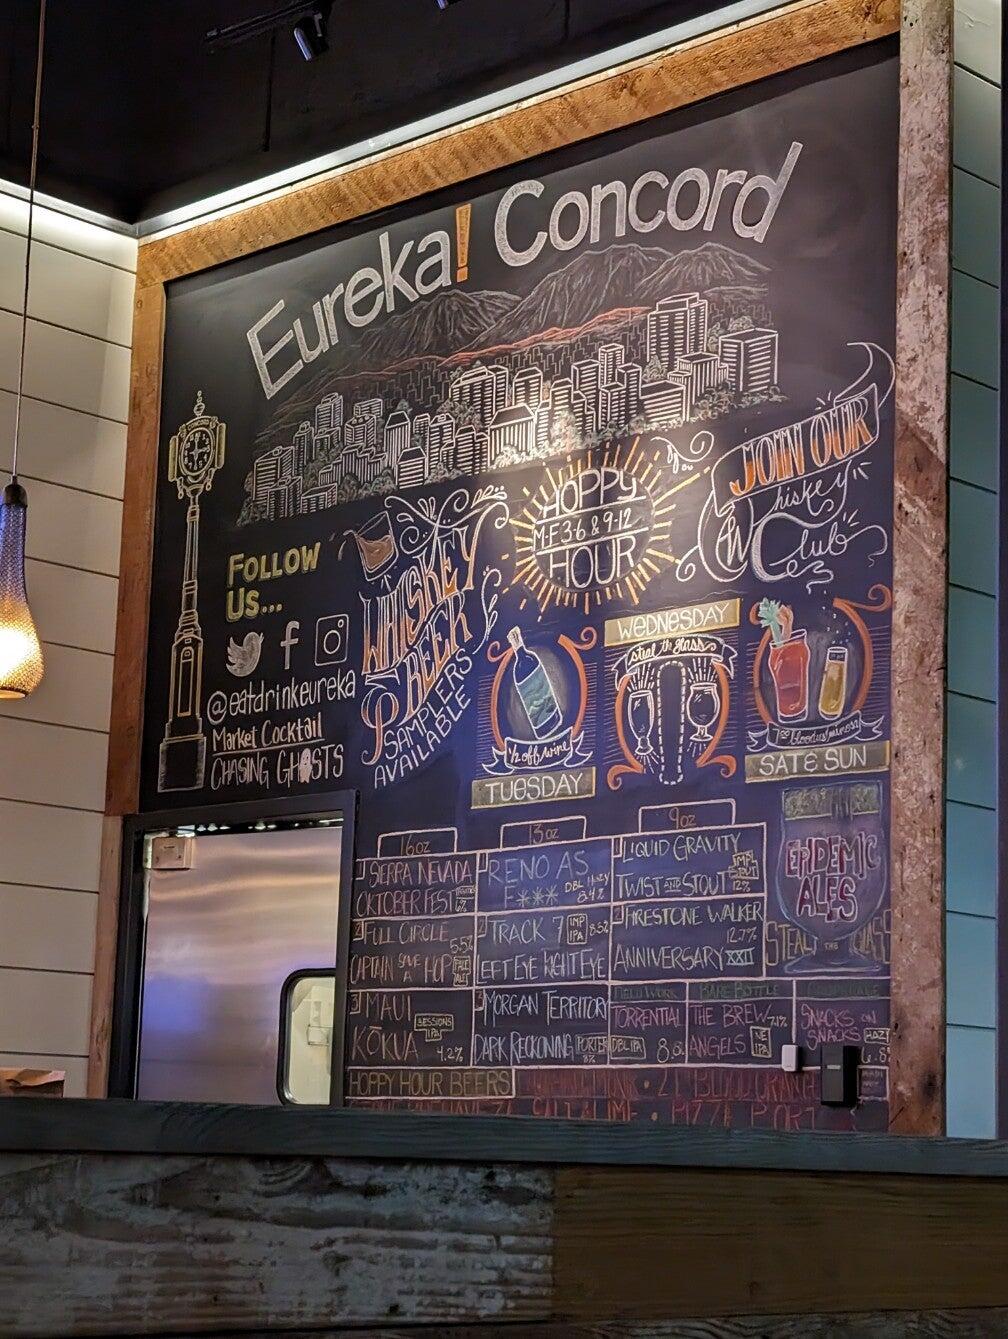 Eureka! Concord
FOLLOW
US...
@eatdrinkeureka
Market Cocktail
CHASING GHOSTS
WHISKEY
BEER
SAMPLERS
AVAILABLE
HOPPY
M-F 3-6 & 9-12
HOUR
JOIN OUR
Whiskey
Club
1/2 off wine
TUESDAY
WEDNESDAY
steal the glass
SAT & SUN
16oz
1 SIERRA NEVADA
OKTOBER FEST
6%
2 FULL CIRCLE
5.5%
CAPTAIN SAVE A HOP PALE ALE
3 MAUI
SESSIONS IPA
KŌKUA 4.2%
13oz
1 RENO AS
F*** DBL HAZY 8.4%
2 TRACK 7 IMP IPA 8.5%
LEFT EYE RIGHT EYE
MORGAN TERRITORY
DARK RECKONING PORTER 8%
9oz
1 LIQUID GRAVITY
TWIST AND STOUT IMPL STOUT 12%
2 FIRESTONE WALKER
12.7%
ANNIVERSARY XXII
FIELDWORK
TORRENTIAL
DBL IPA
BARE BOTTLE
THE BREW 7.1%
ANGELS NE IPA
SNACKS ON
SNACKS HAZY
EPIDEMIC
ALES
STEAL THE GLASS
HOPPY HOUR BEERS
BLOOD ORANGE
SALT & LIME • PIZZA PORT